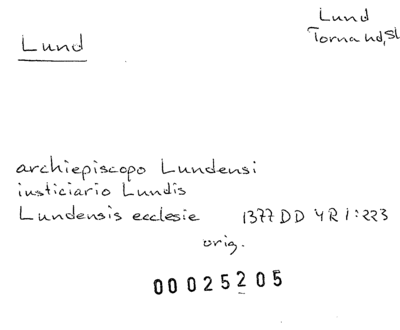 Lund
Torna hd, Sk
Lund
archiepiscopo Lundensi
iusticiario Lundis
Lundensis ecclesie 1377 DD 4R 1:223
orig.
00025205